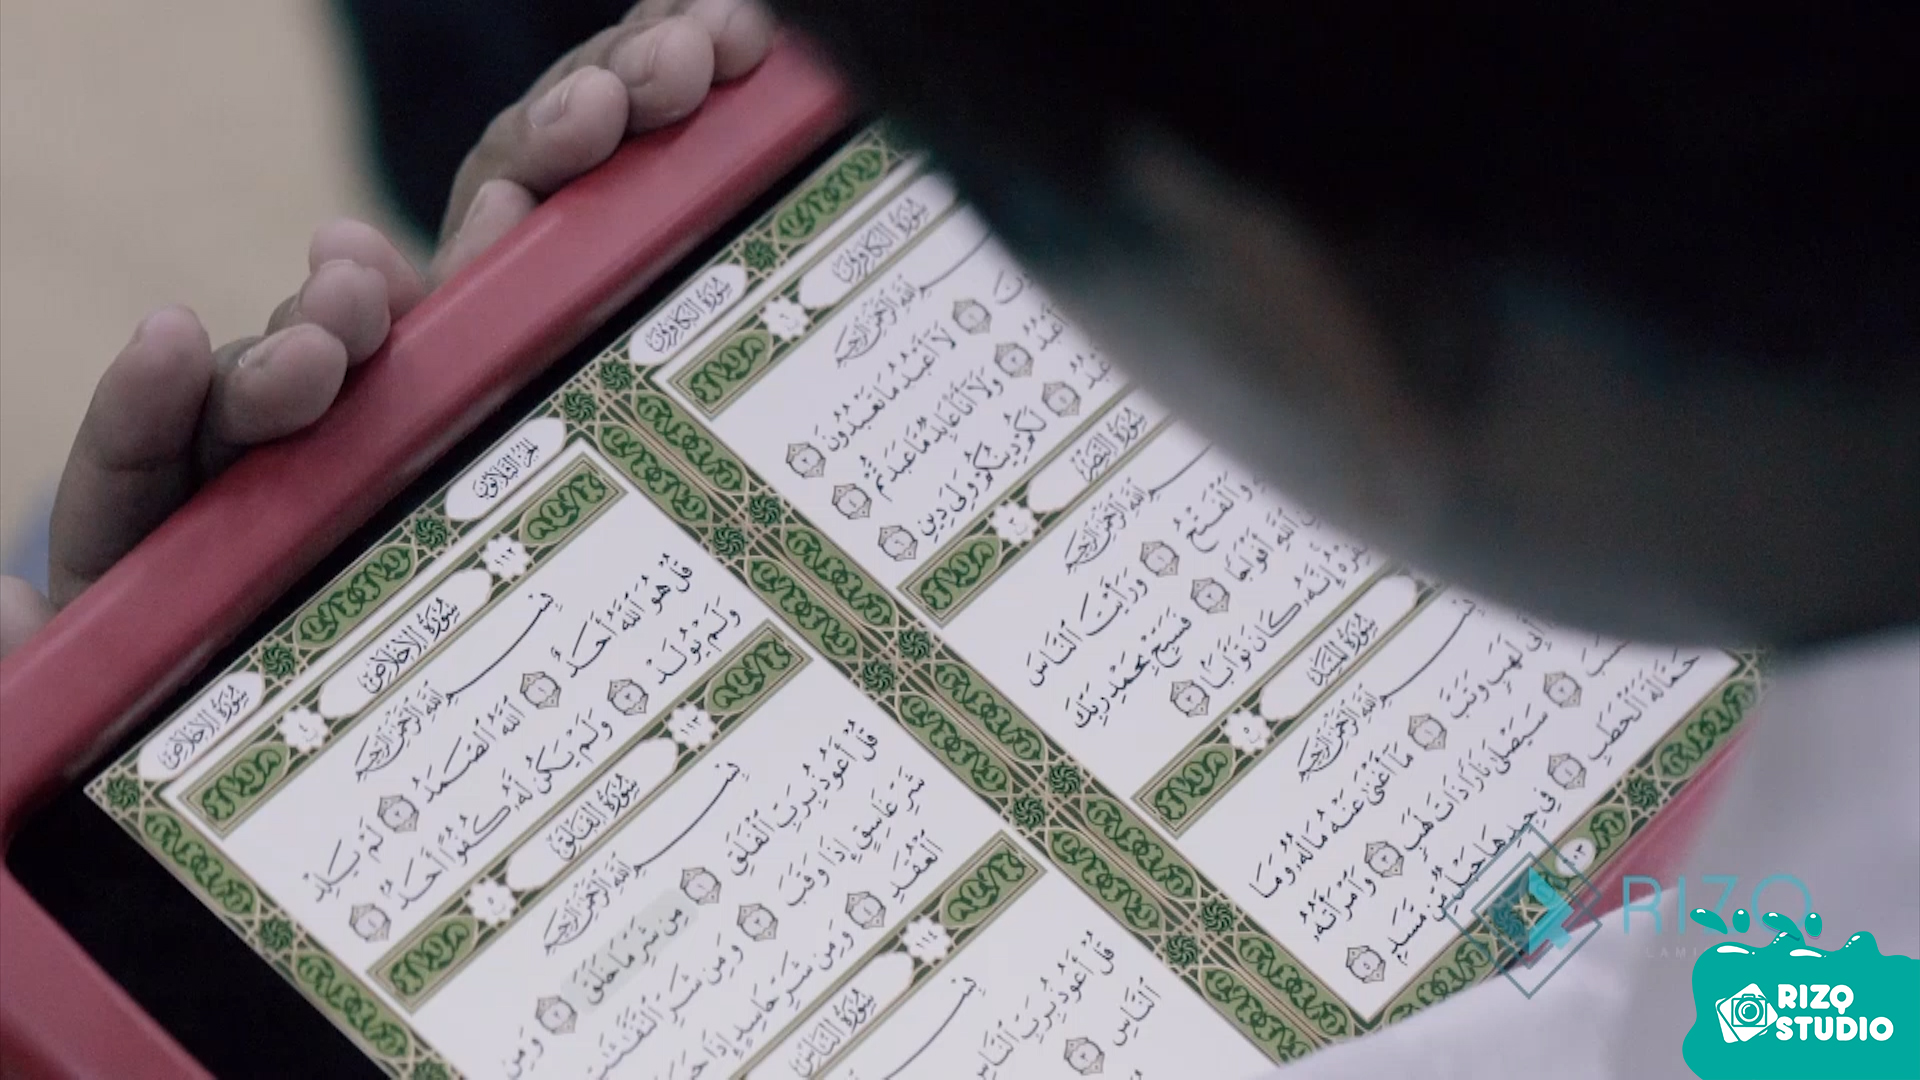 سُورَةُ الكَافِرُونَ
سُورَةُ الكَافِرُونَ
٦
ٱللَّهِ ٱلرَّحْمَٰنِ ٱلرَّحِيمِ
١ لَآ أَعْبُدُ مَا تَعْبُدُونَ ٢
أَعْبُدُ ٣ وَلَآ أَنَا۠ عَابِدٌ مَّا عَبَدتُّمْ ٤
لَكُمْ دِينُكُمْ وَلِىَ دِينِ ٦
سُورَةُ النَّصْرِ
٣
ٱللَّهِ ٱلرَّحْمَٰنِ ٱلرَّحِيمِ
وَٱلْفَتْحُ ١ وَرَأَيْتَ ٱلنَّاسَ
ٱللَّهِ أَفْوَاجًا ٢ فَسَبِّحْ بِحَمْدِ رَبِّكَ
إِنَّهُۥ كَانَ تَوَّابًۢا ٣
سُورَةُ المَسَدِ
٥
بِسْمِ ٱللَّهِ ٱلرَّحْمَٰنِ ٱلرَّحِيمِ
أَبِى لَهَبٍ وَتَبَّ ١ مَآ أَغْنَىٰ عَنْهُ مَالُهُۥ وَمَا
٢ سَيَصْلَىٰ نَارًا ذَاتَ لَهَبٍ ٣ وَٱمْرَأَتُهُۥ
حَمَّالَةَ ٱلْحَطَبِ ٤ فِى جِيدِهَا حَبْلٌ مِّن مَّسَدٍۭ ٥
الجُزْءُ الثَّلَاثُونَ
سُورَةُ الإِخْلَاصِ
١١٢ سُورَةُ الإِخْلَاصِ ٤
بِسْمِ ٱللَّهِ ٱلرَّحْمَٰنِ ٱلرَّحِيمِ
قُلْ هُوَ ٱللَّهُ أَحَدٌ ١ ٱللَّهُ ٱلصَّمَدُ ٢ لَمْ يَلِدْ
وَلَمْ يُولَدْ ٣ وَلَمْ يَكُن لَّهُۥ كُفُوًا أَحَدٌۢ ٤
١١٣ سُورَةُ الفَلَقِ ٥
بِسْمِ ٱللَّهِ ٱلرَّحْمَٰنِ ٱلرَّحِيمِ
قُلْ أَعُوذُ بِرَبِّ ٱلْفَلَقِ ١ مِن شَرِّ مَا خَلَقَ ٢ وَمِن
شَرِّ غَاسِقٍ إِذَا وَقَبَ ٣ وَمِن شَرِّ ٱلنَّفَّٰثَٰتِ
ٱلْعُقَدِ ٤ وَمِن شَرِّ حَاسِدٍ إِذَا
١١٤ سُورَةُ النَّاسِ
بِسْمِ
قُلْ أَعُوذُ بِرَبِّ ٱلنَّاسِ
ٱلنَّاسِ
RIZQ
RIZQ
STUDIO